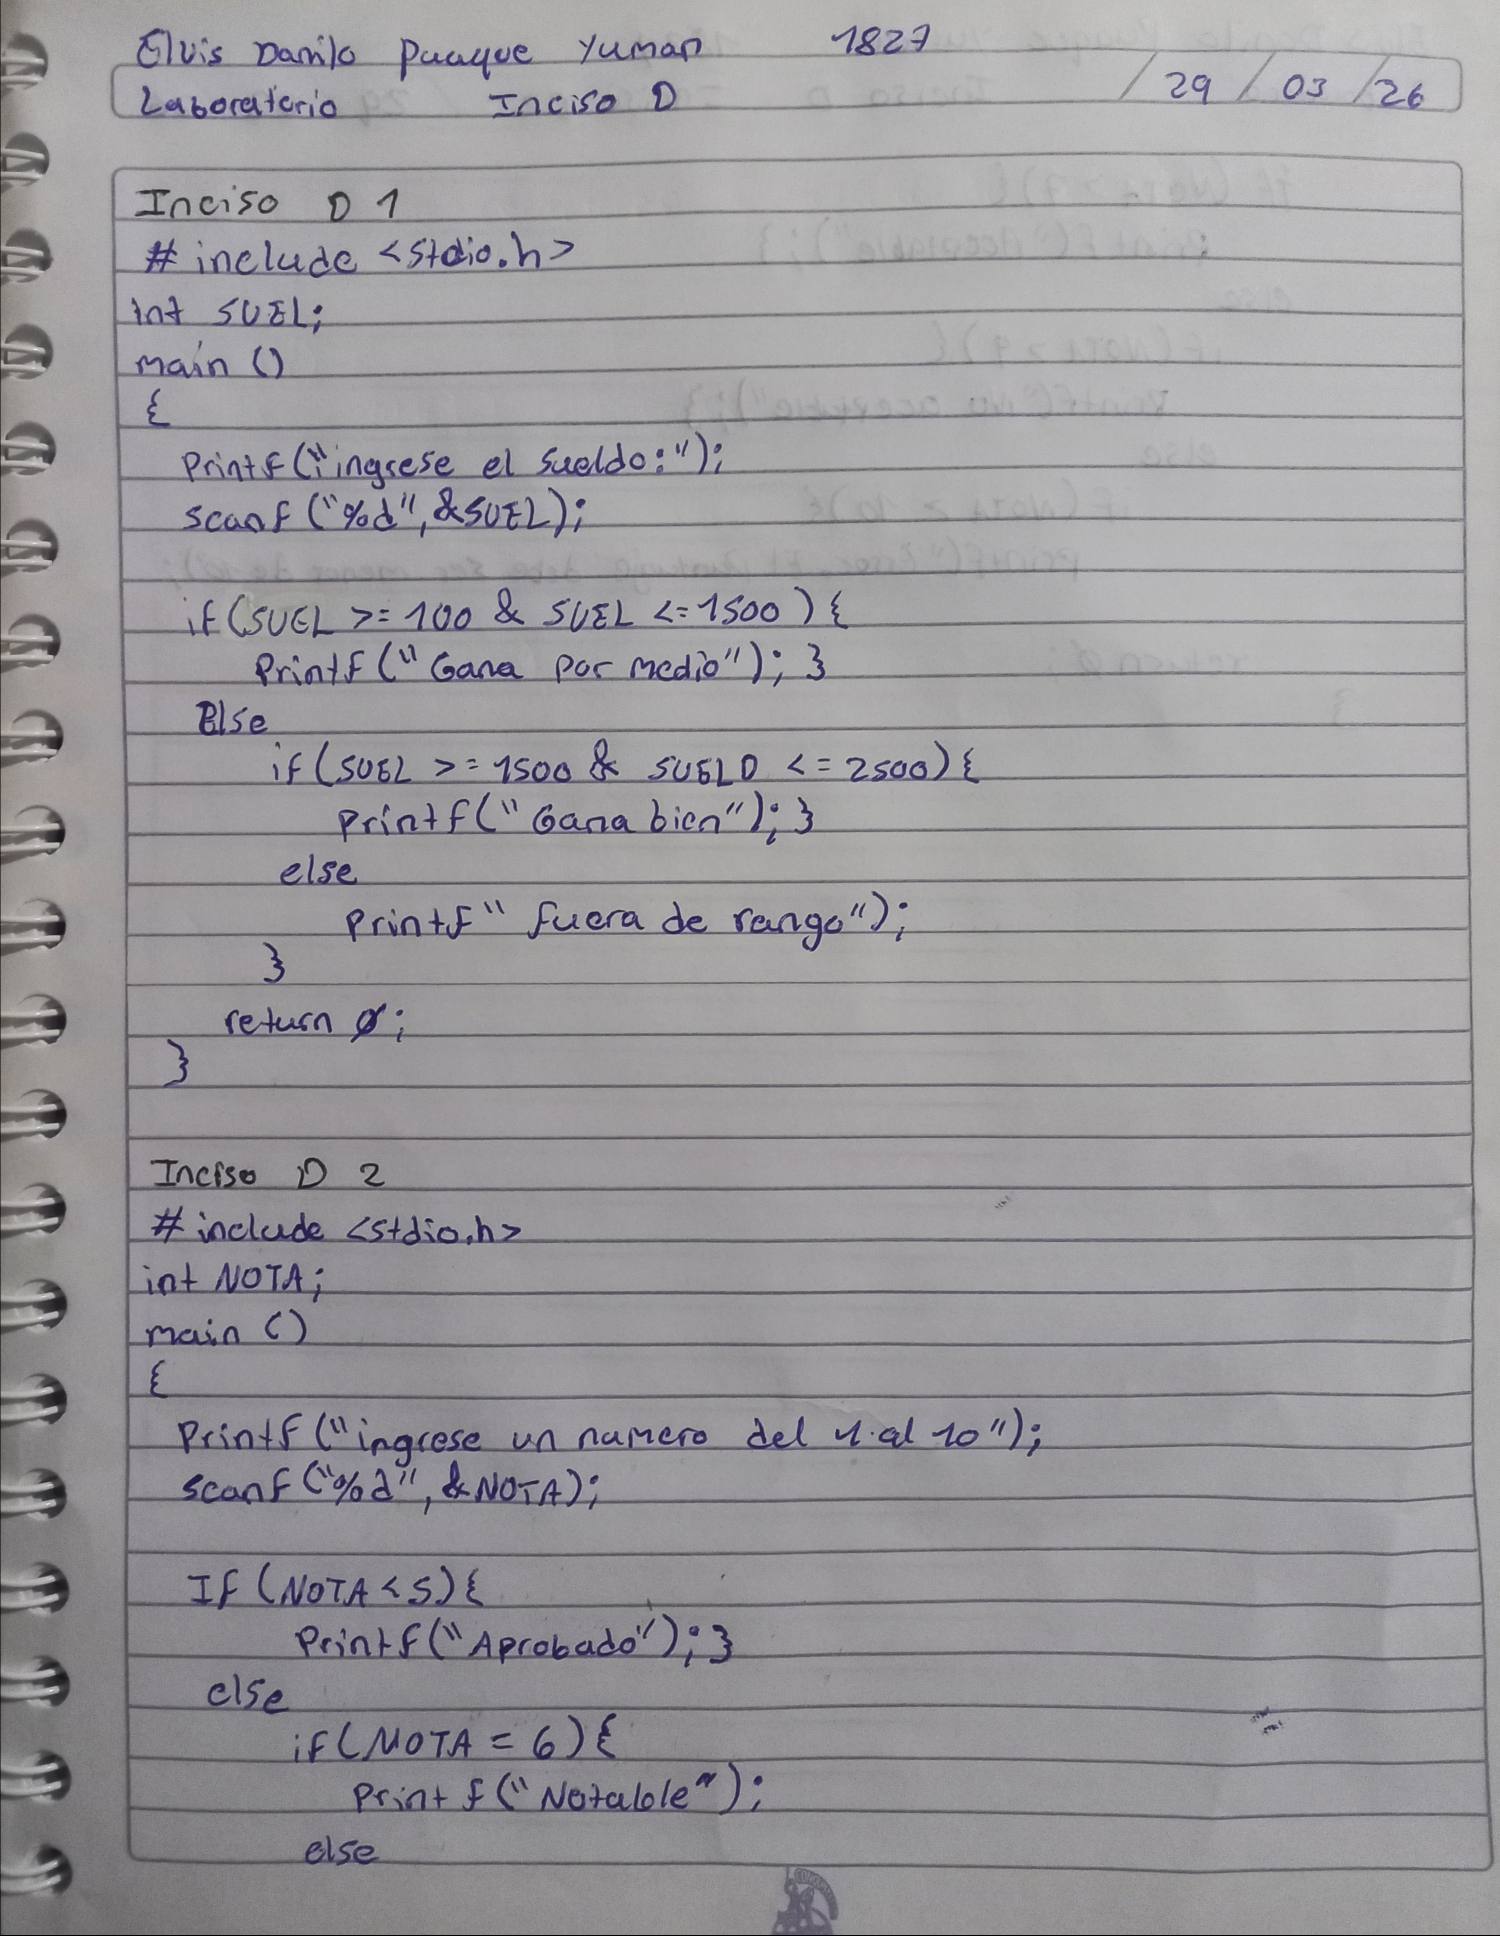 Elvis Danilo Puaque Yuman 1827
Laboratorio Inciso D / 29 / 03 / 26
Inciso D 1
# include <stdio.h>
int SUEL;
main ()
{
printf("ingrese el sueldo:");
scanf ("%d", &SUEL);
if (SUEL >= 100 & SUEL <= 1500 ) {
Printf ("Gana por medio"); }
Else
if (SUEL >= 1500 & SUELD <= 2500) {
printf ("Gana bien"); }
else
printf " fuera de rango");
}
return 0;
}
Inciso D 2
# include <stdio.h>
int NOTA;
main ()
{
Printf ("ingrese un numero del 1 al 10");
scanf ("%d", &NOTA);
If (NOTA < 5) {
Printf ("Aprobado"); }
else
if (NOTA = 6) {
Print f ("Notalole");
else